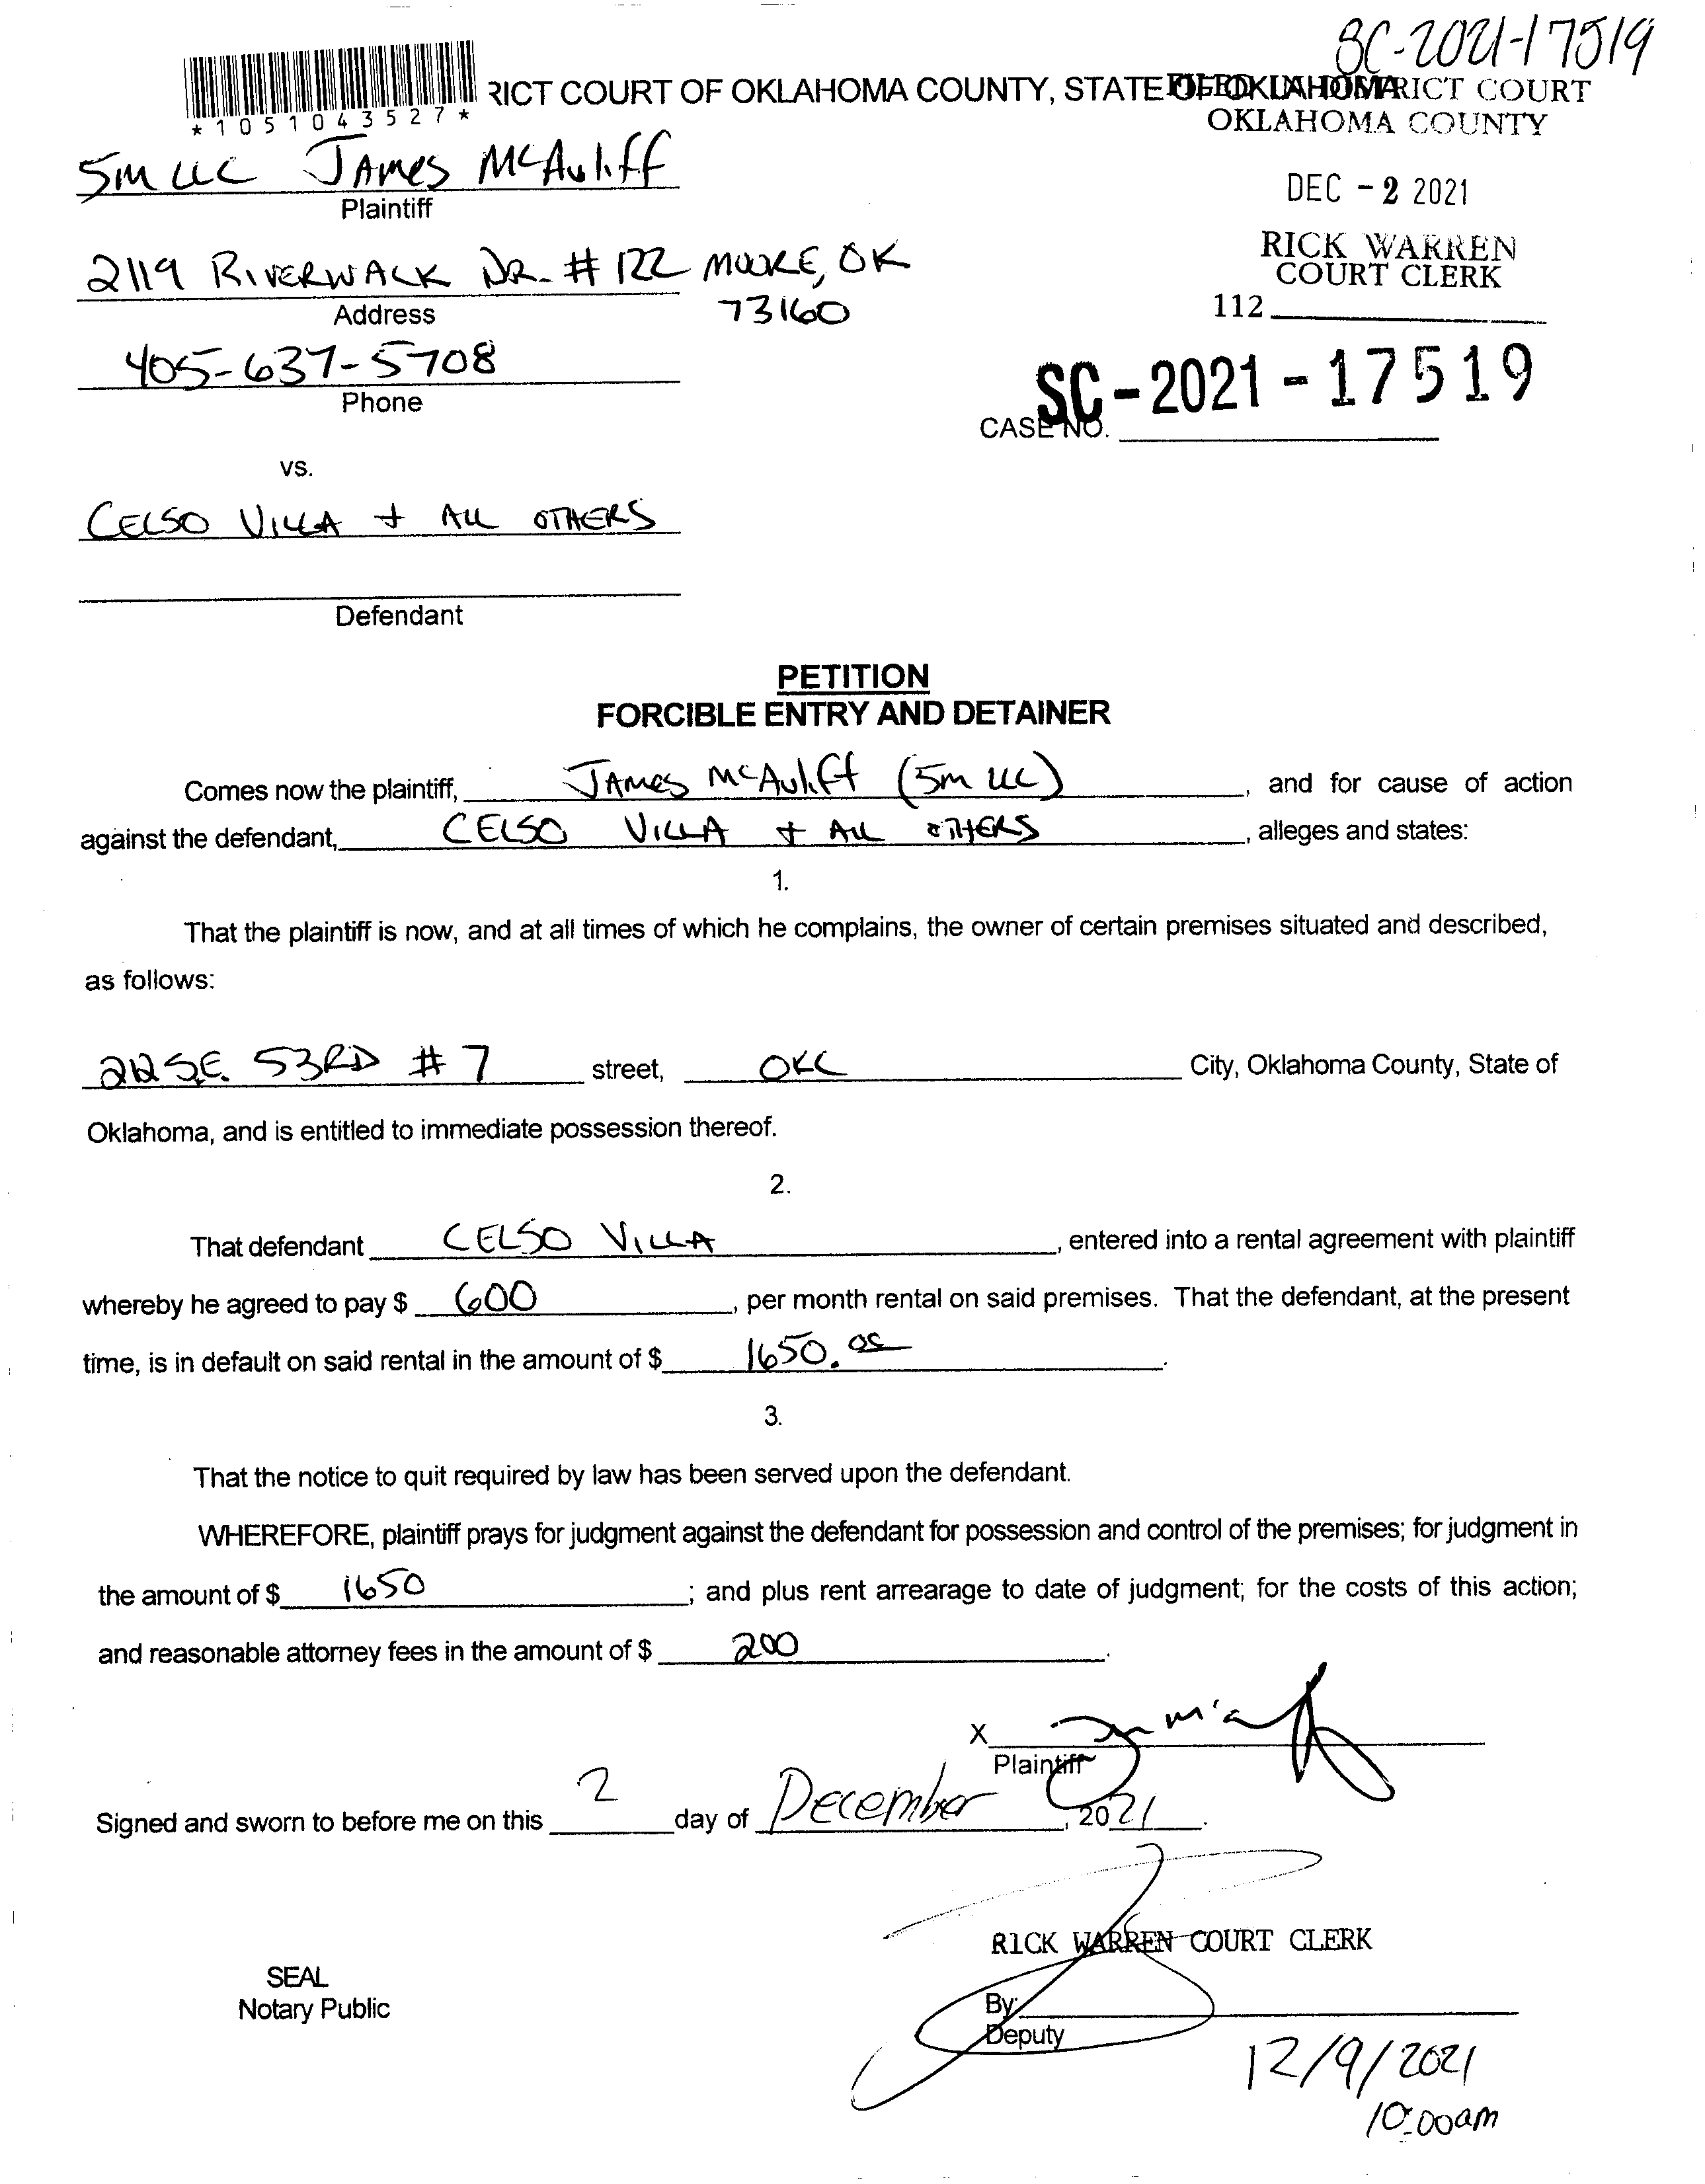 SC-2021-17519
RICT COURT OF OKLAHOMA COUNTY, STATE OF OKLAHOMA
FILED IN DISTRICT COURT
OKLAHOMA COUNTY
*1051043527*
5M LLC James McAuliff
Plaintiff
DEC - 2 2021
2119 RIVERWALK DR. # 122 MOORE, OK
73160
Address
RICK WARREN
COURT CLERK
112
405-637-5708
Phone
SC-2021-17519
CASE NO.
vs.
CELSO VILLA + ALL OTHERS
Defendant
PETITION
FORCIBLE ENTRY AND DETAINER
Comes now the plaintiff, James McAuliff (5M LLC), and for cause of action
against the defendant, CELSO VILLA + ALL OTHERS, alleges and states:
1.
That the plaintiff is now, and at all times of which he complains, the owner of certain premises situated and described,
as follows:
S.E. 53RD # 7 street, OKC City, Oklahoma County, State of
Oklahoma, and is entitled to immediate possession thereof.
2.
That defendant CELSO VILLA, entered into a rental agreement with plaintiff
whereby he agreed to pay $ 600, per month rental on said premises. That the defendant, at the present
time, is in default on said rental in the amount of $ 1650.00.
3.
That the notice to quit required by law has been served upon the defendant.
WHEREFORE, plaintiff prays for judgment against the defendant for possession and control of the premises; for judgment in
the amount of $ 1650; and plus rent arrearage to date of judgment; for the costs of this action;
and reasonable attorney fees in the amount of $ 200.
X
Plaintiff
Signed and sworn to before me on this 2 day of December, 2021.
RICK WARREN COURT CLERK
SEAL
Notary Public
By:
Deputy
12/9/2021
10:00am